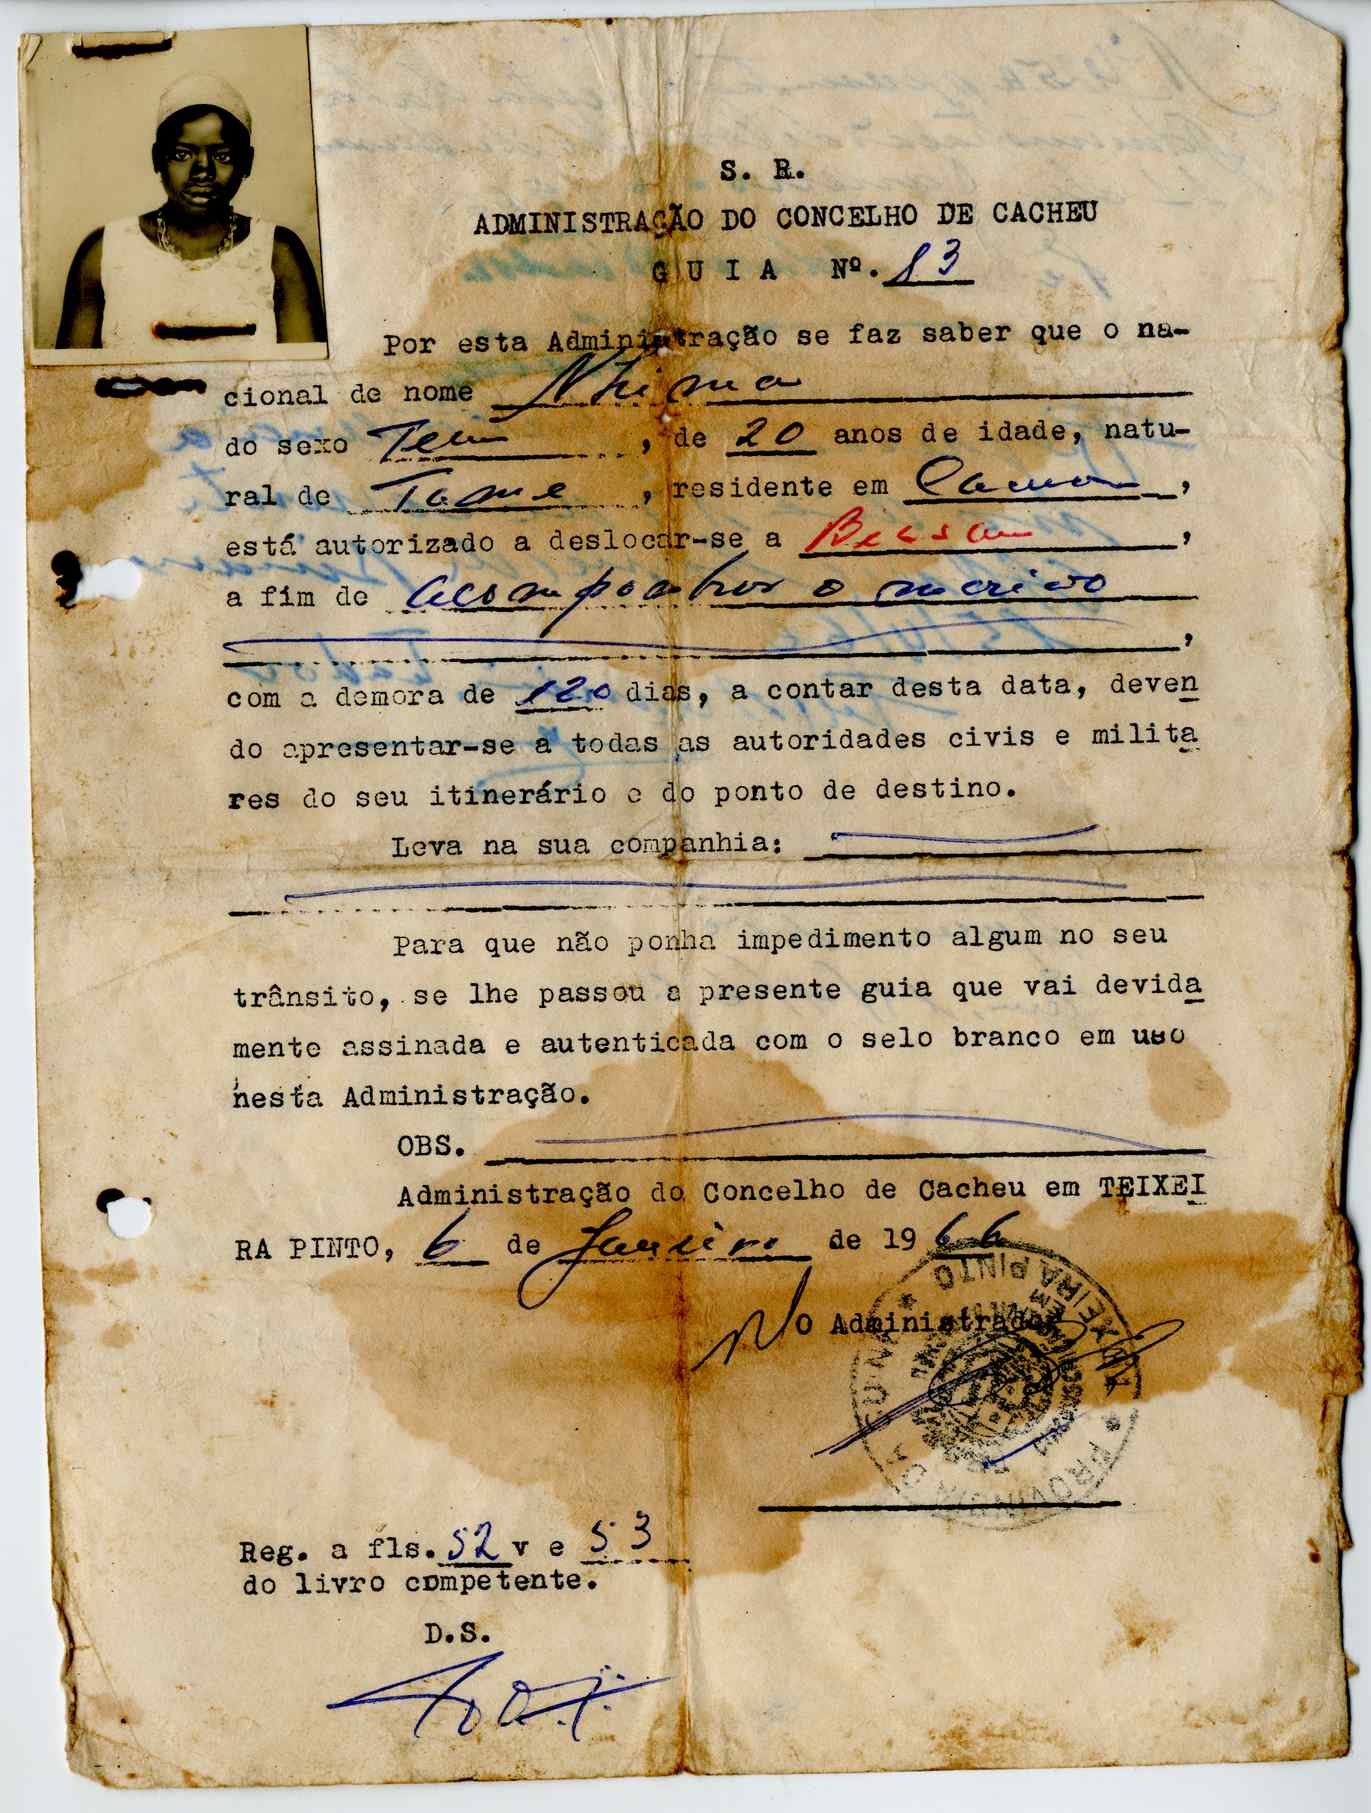 S. R.
ADMINISTRAÇÃO DO CONCELHO DE CACHEU
G U I A Nº. 83
Por esta Administração se faz saber que o na-
cional de nome Nhima
do sexo Fem, de 20 anos de idade, natu-
ral de Tame, residente em,
está autorizado a deslocar-se a Bissau,
a fim de acompanhar o marido
,
com a demora de 120 dias, a contar desta data, deven
do apresentar-se a todas as autoridades civis e milita
res do seu itinerário e do ponto de destino.
Leva na sua companhia:
Para que não ponha impedimento algum no seu
trânsito, se lhe passou a presente guia que vai devida
mente assinada e autenticada com o selo branco em uso
nesta Administração.
OBS.
Administração do Concelho de Cacheu em TEIXEI
RA PINTO, 6 de Janeiro de 1966
O Administrador
PROVINCIA DA GUINÉ TEIXEIRA PINTO
Reg. a fls. 52 v e 53
do livro competente.
D.S.